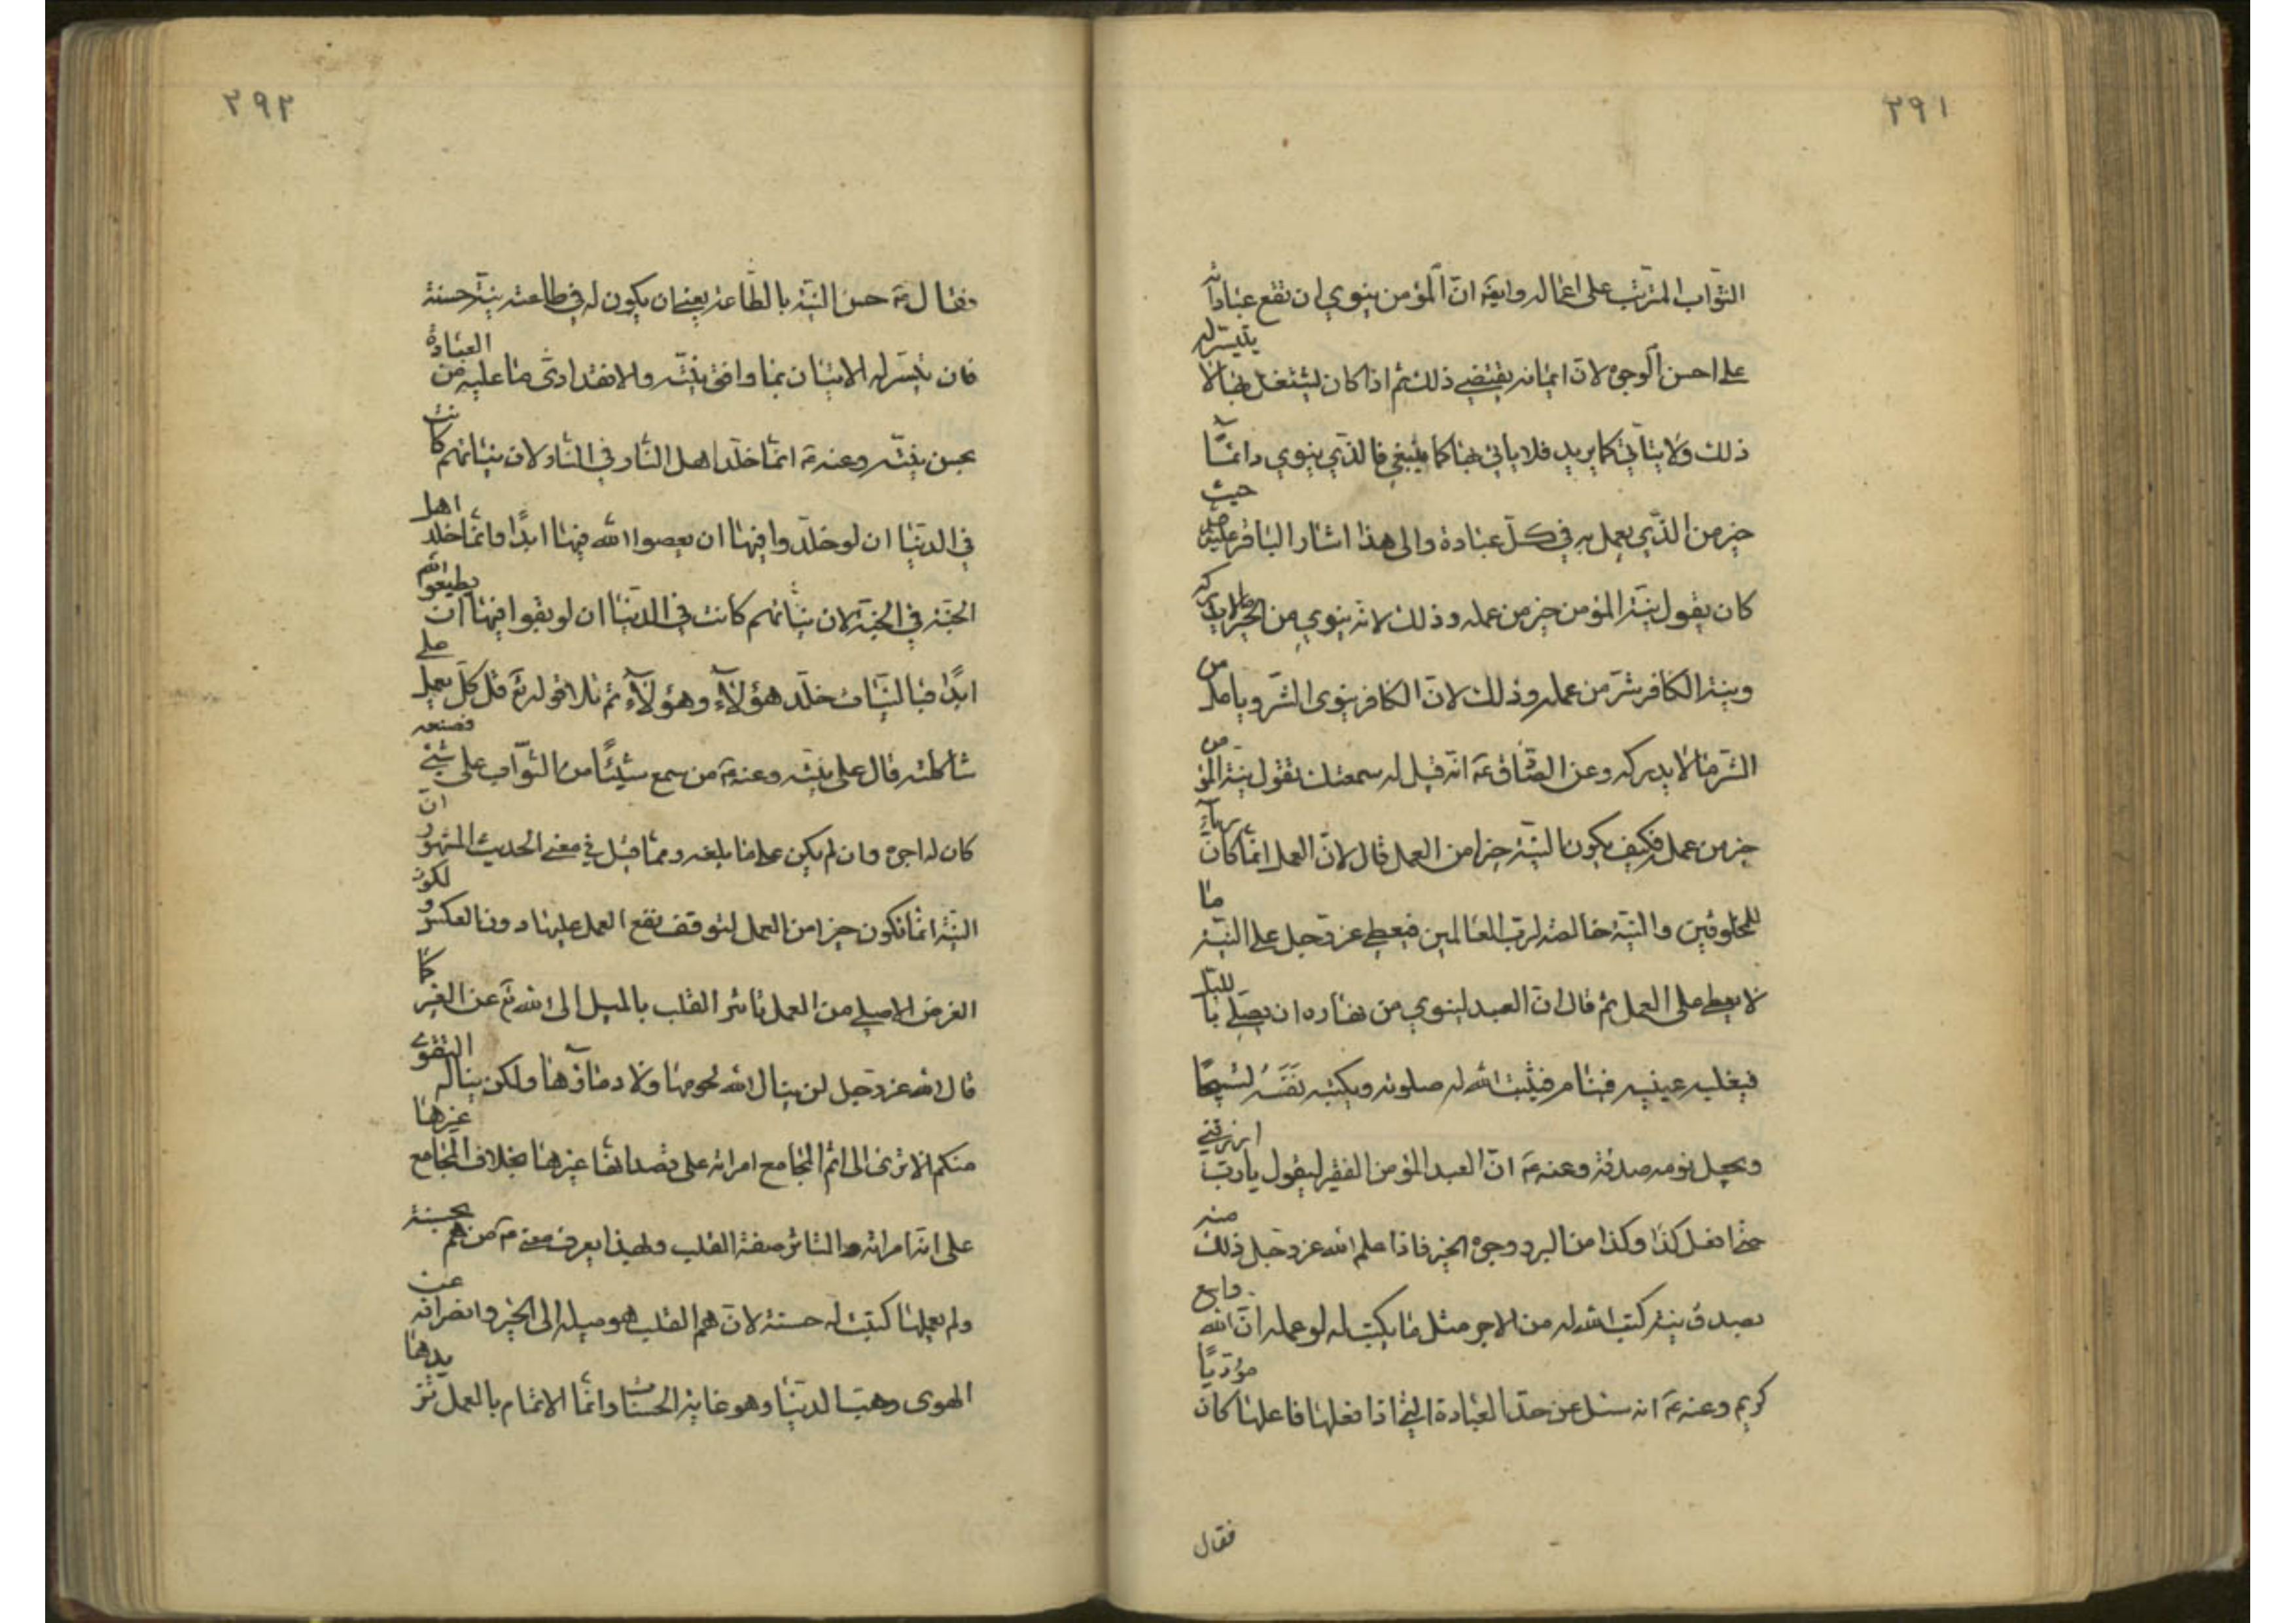 ٢٩١
الثواب المترتب على اعماله وايضا ان المؤمن ينوي ان تقع عباداته
على احسن الوجوه لان ايمانه يقتضي ذلك ثم اذا كان يشتغل بها لا يتيسر له
ذلك ولا يتأتى كما يريد فلا ياتي بها كما ينبغي فالذي ينوي دائما
خير من الذي يعمل به في كل عبادة والى هذا اشار الباقر حيث
كان يقول نية المؤمن خير من عمله وذلك لانه ينوي من الخير ما لا يدركه
ونية الكافر شر من عمله وذلك لان الكافر ينوى الشر ويامل من
الشر ما لا يدركه وعن الصادق عه انه قيل له سمعتك تقول نية المؤمن
خير من عمله فكيف يكون النية خيرا من العمل قال لان العمل انما كان رياء
للمخلوقين والنية خالصة لرب العالمين فيعطي عز وجل على النية ما
لا يعطي على العمل ثم قال ان العبد لينوي من نهاره ان يصلي بالليل
فيغلبه عينيه فينام فيثبت الله له صلوته ويكتب نَفَسَهُ تسبيحًا
ويجعل نومه صدقة وعنه عه ان العبد المؤمن الفقير ليقول يا رب ارزقني
حتى افعل كذا وكذا من البر ووجوه الخير فاذا علم الله عز وجل ذلك منه
بصدق نية كتب الله له من الاجر مثل ما يكتب له لو عمله ان الله واسع
كريم وعنه عه انه سئل عن حد العبادة التي اذا فعلها فاعلها كان مؤديًا
فقال
٢٩٢
فقال عه حسن النية بالطاعة يعني ان يكون له في طاعته نية حسنة
فان تيسر له الاتيان بما وافق نيته والا فقد ادى ما عليه من العبادة
بحسن نيته وعنه عه انما خلد اهل النار في النار لان نياتهم كانت
في الدنيا ان لو خلدوا فيها ان يعصوا الله فيها ابدًا وانما خلد اهل
الجنة في الجنة لان نياتهم كانت في الدنيا ان لو بقوا فيها ان يطيعوا الله
ابدًا فبالنيات خلد هؤلاء وهؤلاء ثم تلا قوله تع قل كل يعمل على
شاكلته قال على نيته وعنه عه من سمع شيئًا من الثواب على شئ فصنعه
كان له اجره وان لم يكن على ما بلغه ومما قيل في معنى الحديث المشهور ان
النية انما تكون خيرا من العمل لتوقف نفع العمل عليها دون العكس ولكون
الغرض الاصلي من العمل تاثر القلب بالميل الى الله تع عن الغير كما
قال الله عز وجل لن ينال الله لحومها ولا دماؤها ولكن يناله التقوى
منكم الا ترى الى اثم المجامع امراته على قصد انها غيرها بخلاف المجامع غيرها
على انه امراته والتاثر صفة القلب ولهذا يعرف معنى من هم بحسنة
ولم يعملها كتبت له حسنة لان هم القلب هو ميله الى الخير وانصرافه عن
الهوى وحب الدنيا وهو غاية الحسنات وانما الاتمام بالعمل يزيدها